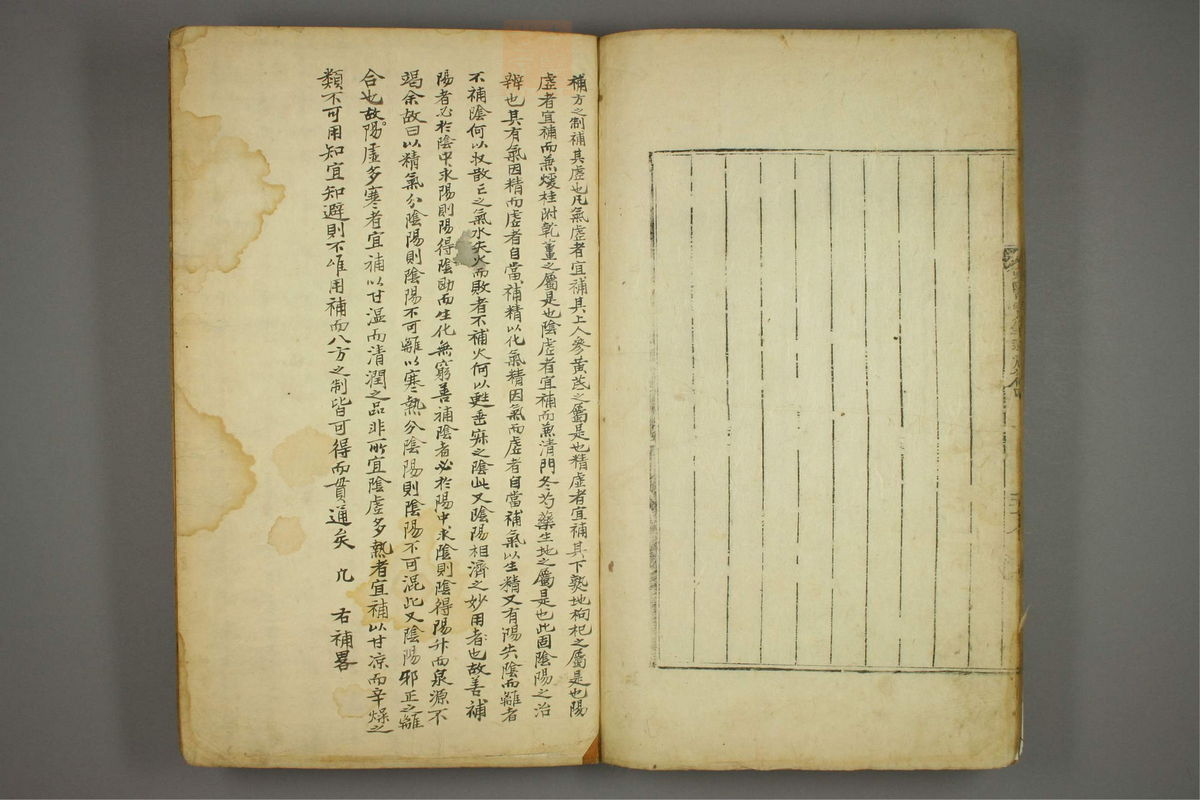 補方之制補其虛也凡氣虛者宜補其上人參黃芪之屬是也精虛者宜補其下熟地枸杞之屬是也陽
虛者宜補而兼煖桂附乾薑之屬是也陰虛者宜補而兼清門冬芍藥生地之屬是也此固陰陽之治
辨也其有氣因精而虛者自當補精以化氣精因氣而虛者自當補氣以生精又有陽失陰而離者
不補陰何以收散亡之氣水失火而敗者不補火何以甦垂寐之陰此又陰陽相濟之妙用者也故善補
陽者必於陰中求陽則陽得陰助而生化無窮善補陰者必於陽中求陰則陰得陽升而泉源不
竭余故曰以精氣分陰陽則陰陽不可離以寒熱分陰陽則陰陽不可混此又陰陽邪正之離
合也故陽虛多寒者宜補以甘溫而清潤之品非所宜陰虛多熱者宜補以甘凉而辛燥之
類不可用知宜知避則不惟用補而八方之制皆可得而貫通矣 凢 右補畧